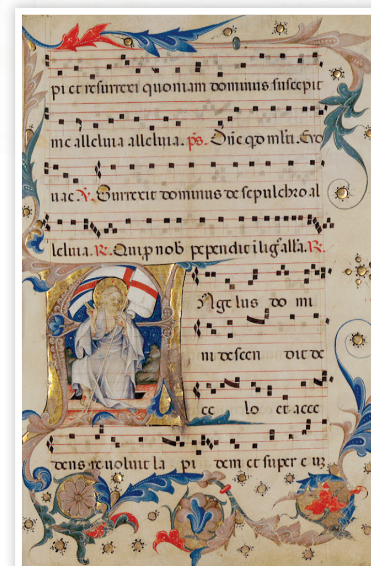 pi et resurrexi quoniam dominus suscepit
me alleluia alleluia. ps. Dñe qd mlti. Euo
uae. V. Surrexit dominus de sepulchro al
leluia. R. Qui p nob pependit i lig alla. R.
Angelus do mi
ni descen dit de
ce lo et acce
dens reuoluit la pi dem et super e uz